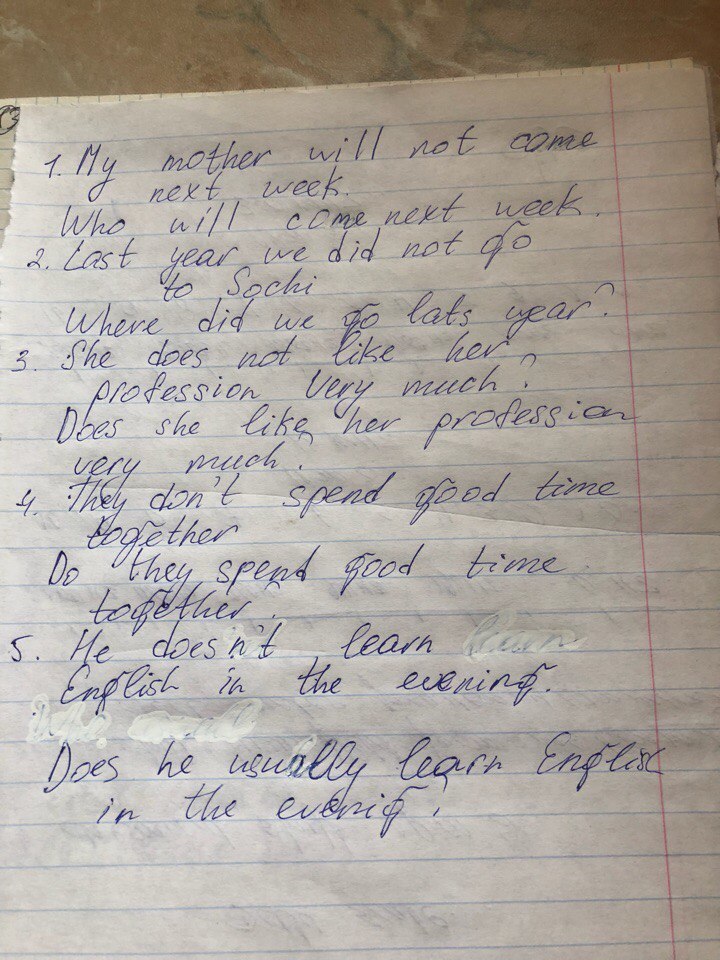 1. My mother will not come
next week.
Who will come next week.
2. Last year we did not go
to Sochi
Where did we go lats year?
3. She does not like her
profession very much?
Does she like her profession
very much?
4. They don't spend good time
together
Do they spend good time
together?
5. He doesn't learn
English in the evening.
Does he usually learn English
in the evenig?